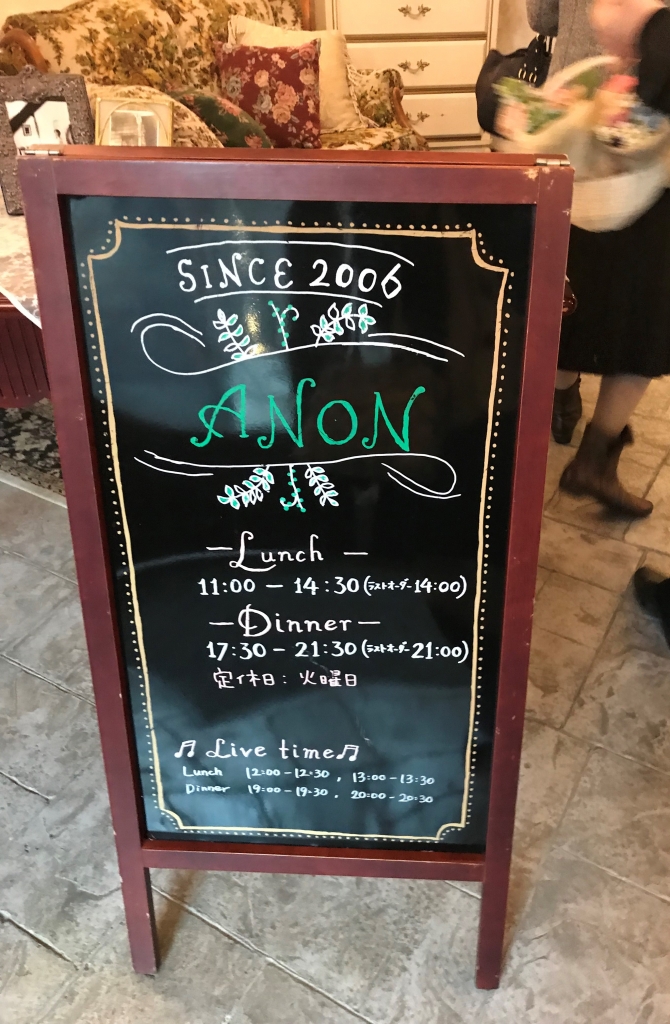 SINCE 2006
ANON
—Lunch—
11:00 — 14:30(ラストオーダー14:00)
—Dinner—
17:30 — 21:30(ラストオーダー21:00)
定休日: 火曜日
♫ Live time♫
Lunch 12:00-12:30, 13:00-13:30
Dinner 19:00-19:30. 20:00-20:30